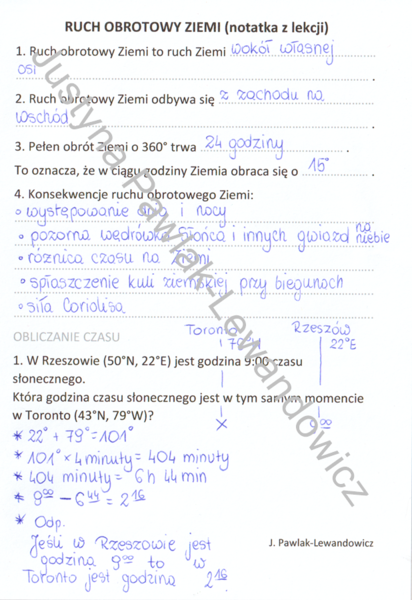 RUCH OBROTOWY ZIEMI (notatka z lekcji)
1. Ruch obrotowy Ziemi to ruch Ziemi wokół własnej
osi
2. Ruch obrotowy Ziemi odbywa się z zachodu na
wschód
3. Pełen obrót Ziemi o 360° trwa 24 godziny.
To oznacza, że w ciągu godziny Ziemia obraca się o 15°.
4. Konsekwencje ruchu obrotowego Ziemi:
• występowanie dnia i nocy
• pozorna wędrówka Słońca i innych gwiazd na niebie
• różnica czasu na Ziemi
• spłaszczenie kuli ziemskiej przy biegunach
• siła Coriolisa
OBLICZANIE CZASU
Toronto Rzeszów
79°W 22°E
1. W Rzeszowie (50°N, 22°E) jest godzina 9:00 czasu
słonecznego.
Która godzina czasu słonecznego jest w tym samym momencie
w Toronto (43°N, 79°W)?
X 9⁰⁰
* 22° + 79° = 101°
* 101° × 4 minuty = 404 minuty
* 404 minuty = 6h 44 min
* 9⁰⁰ – 6⁴⁴ = 2¹⁶
* Odp.
Jeśli w Rzeszowie jest
godzina 9⁰⁰ to w
Toronto jest godzina 2¹⁶.
J. Pawlak-Lewandowicz
Justyna Pawlak-Lewandowicz